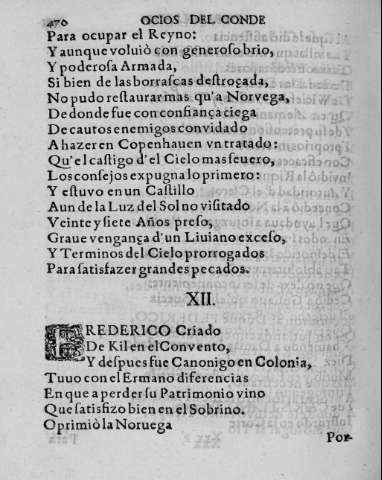 470 OCIOS DEL CONDE
Para ocupar el Reyno:
Y aunque voluiò con generoso brio,
Y poderosa Armada,
Si bien de las borrascas destroçada,
No pudo restaurar mas qu'a Norvega,
De donde fue con confiança ciega
De cautos enemigos convidado
A hazer en Copenhauen vn tratado:
Qu'el castigo d'el Cielo mas seuero,
Los consejos expugna lo primero:
Y estuvo en un Castillo
Aun de la Luz del Sol no visitado
Veinte y siete Años preso,
Graue vengança d'un Liuiano exceso,
Y Terminos del Cielo prorrogados
Para satisfazer grandes pecados.
XII.
FREDERICO Criado
De Kil en el Convento,
Y despues fue Canonigo en Colonia,
Tuuo con el Ermano diferencias
En que a perder su Patrimonio vino
Que satisfizo bien en el Sobrino.
Oprimiò la Noruega
Por-